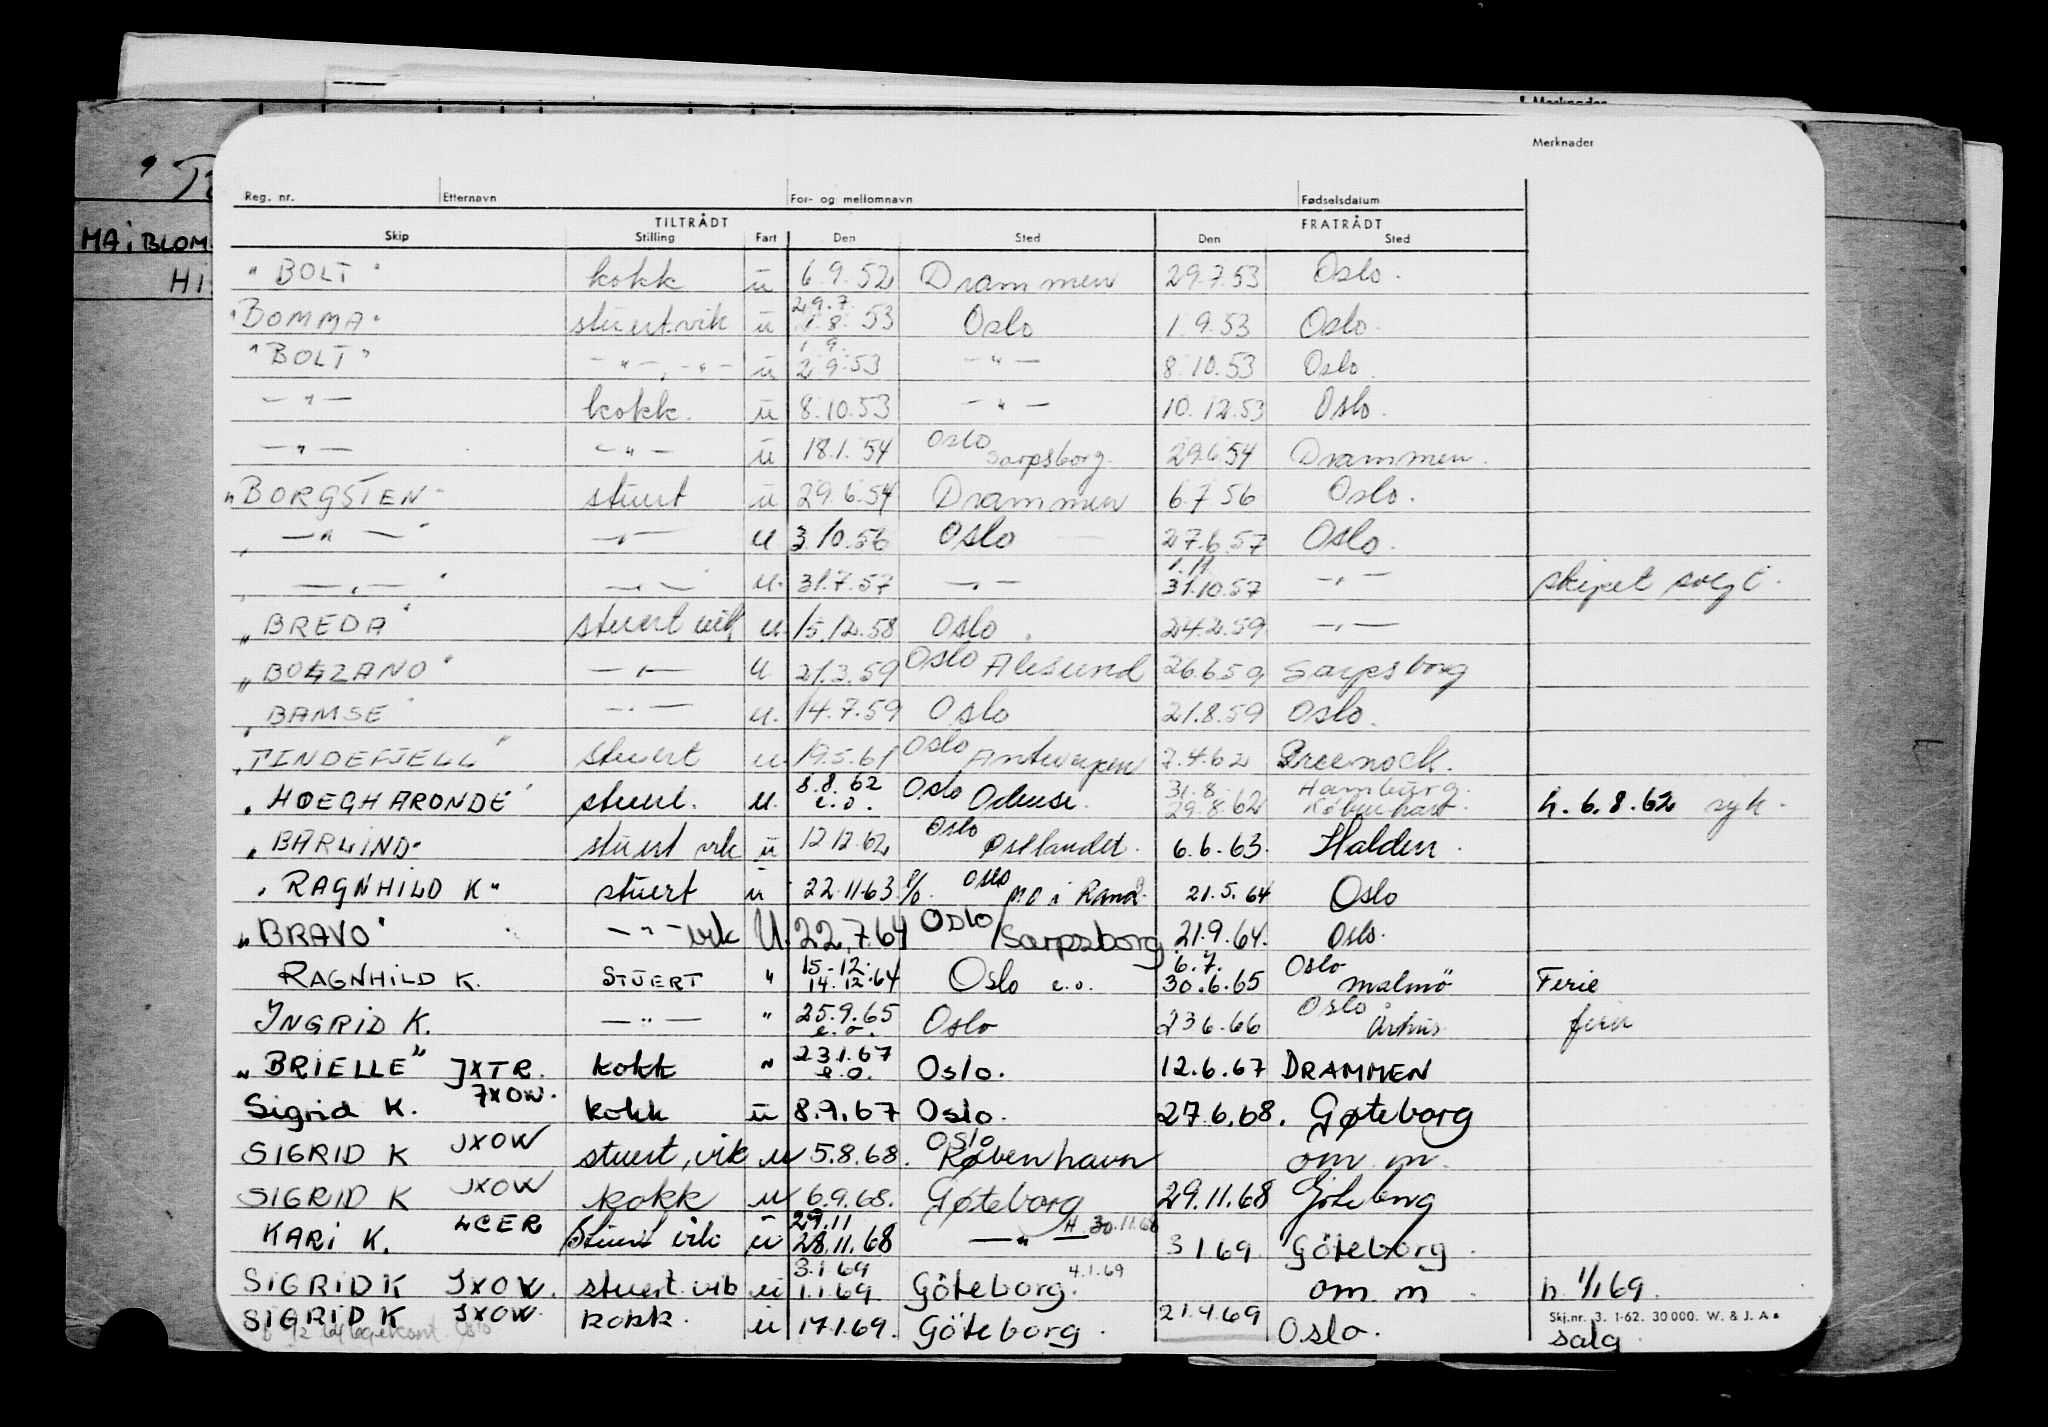 Merknader
MAiBLOM
HI
Merknader
Reg. nr. Etternavn For- og mellomnavn Fødselsdatum
TILTRÅDT FRATRÅDT
Skip Stilling Fart Den Sted Den Sted
"BOLT" kokk u 6.9.52 Drammen 29.7.53 Oslo.
"BOMMA" stuert.vik u 29.7. 1.8. 53 Oslo 1.9.53 Oslo.
"BOLT" -"-, -"- u 1.9. 2.9.53 -"- 8.10.53 Oslo.
-"- kokk. u 8.10.53 -"- 10.12.53 Oslo.
-"- -"- u 18.1.54 Oslo Sarpsborg. 29.6.54 Drammen.
"BORGSTEN" stuert u 29.6.54 Drammen 6.7.56 Oslo.
-"- -"- u 3.10.56 Oslo 27.6.57 Oslo.
-"- -"- u. 31.7.57 -"- 1.11. 31.10.57 -"- skipet solgt.
"BREDA" stuert vik u. 15.12.58 Oslo. 24.2.59 -"-
"BOLZANO" -"- u. 21.3.59 Oslo Ålesund 26.6.59 Sarpsborg
"BAMSE" -"- u. 14.7.59 Oslo 21.8.59 Oslo.
"TINDEFJELL" stuert u 19.5.61 Oslo Antwerpen 7.4.62 Greenock.
"HOEGH ARONDE" stuert. u. 8.8.62 e.o. Oslo Odense. 31.8. 29.8.62 Hamburg. København. h. 6.8.62 syk.
"BARLIND" stuert vik u 12.12.62 Oslo Østlandet. 6.6.63. Halden.
"RAGNHILD K" stuert u 22.11.63 Oslo 21.5.64 Oslo
"BRAVO" -"- vik U. 22.7.64 Oslo/Sarpsborg 21.9.64. Oslo.
RAGNHILD K. STUERT " 15-12. 14.12.64 Oslo e.o. 6.7. 30.6.65 Oslo malmö Ferie
INGRID K. -"- " 25.9.65 e.o. Oslo 23.6.66 Oslo Århus ferie
"BRIELLE" JXTR. kokk " 23.1.67 e.o. Oslo. 12.6.67 DRAMMEN
Sigrid K. JXOW. kokk u 8.9.67 Oslo. 27.6.68. Gøteborg
SIGRID K JXOW stuert, vik u 5.8.68. Oslo København om m.
SIGRID K JXOW kokk u 6.9.68. Gøteborg 29.11.68 Göteborg
KARI K. LCER Stuert vik u 29.11 28.11.68 -"- H 30.11.68 3.1.69. Göteborg.
SIGRID K JXOW. stuert. vik u 3.1.69 1.1.69 Göteborg. 4.1.69 om m h. 1/1 69
SIGRID K JXOW. kokk. u 17.1.69. Göteborg. 21.4.69 Oslo. salg
Skj.nr. 3. 1-62. 30 000. W. & J. A.